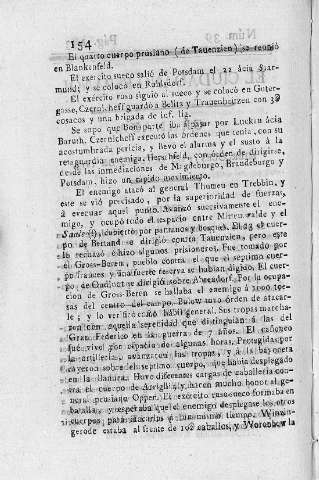 154
El quarto cuerpo prusiano (de Tauenzien) se reunió
en Blankenfeld.
El exército sueco salió de Potsdam el 22 ácia
y se colocó en Ruhlsdorf.
El exército ruso siguió al sueco y se colocó en Guter-
gosse, Czernicheff guardó a Belits y Treuenbritzen con 3@
cosacos y una brigada de inf. lig.
Se supo que Bonaparte iba á pasar por Luckau ácia
Baruth. Czernicheff executó las órdenes que tenia, con su
acostumbrada pericia, y llevó el alarma y el susto á la
retaguardia enemiga. Hirschfeld, con órden de dirigirse,
desde las inmediaciones de Magdeburgo, Brandeburgo y
Potsdam, hizo un rapido movimiento.
El enemigo atacó al general Thumen en Trebbin, y
este se vió precisado, por la superioridad de fuerzas,
á evacuar aquel punto. Avanzó succesivamente el ene-
migo, y ocupó todo el espacio entre Mittenwalde y el
cubierto por pantanos y bosques. El 23 el cuer-
po de Bertrand se dirigió contra Tauenzien, pero este
lo rechazó é hizo algunos prisioneros. Fue tomado por
el Gross-Beren, pueblo contra el que el septimo cuer-
po frances y una fuerte reserva se habian dirigido. El cuer-
po de Oudinot se dirigió sobre Por la ocupa-
cion de Gross-Beren se hallaba el enemigo á 1000 toe-
sas del centro del campo. Bulow tuvo órden de atacar-
le, y lo verificó como habil general. Sus tropas marcha-
ron con aquella serenidad que distinguian á las del
Gran Federico en la guerra de 7 años. El cañoneo
fué vivo por espacio de algunas horas. Protegidas por
la artilleria, avanzaron las tropas, y á la
cayeron sobre el septimo cuerpo, que habia desplegado
en la llanura. Hubo diferentes cargas de caballeria con-
tra el cuerpo de que hacen mucho honor al ge-
neral prusiano Oppen. El exército ruso-sueco formaba en
batalla, y esperaba que el enemigo desplegase los otros
cuerpos, para atacarlos al mismo tiempo. Winzin-
gerode estaba al frente de 10@ caballos, y Woronzow la